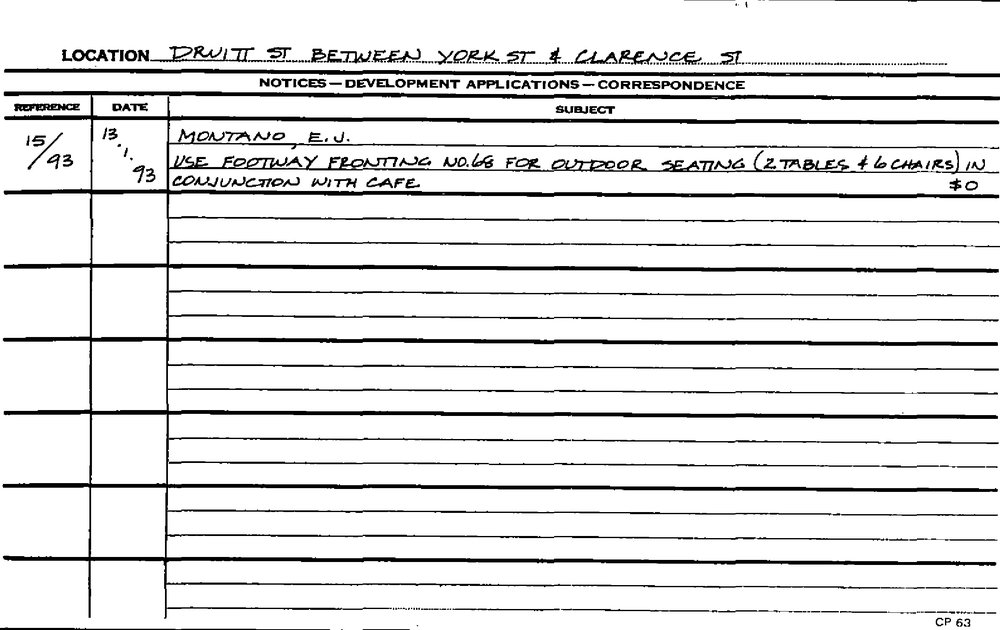 LOCATION DRUITT ST BETWEEN YORK ST & CLARENCE ST
NOTICES—DEVELOPMENT APPLICATIONS—CORRESPONDENCE
REFERENCE DATE SUBJECT
15/93 13.1.93 MONTANO, E.J.
USE FOOTWAY FRONTING NO.68 FOR OUTDOOR SEATING (2 TABLES & 6 CHAIRS) IN
CONJUNCTION WITH CAFE $0
CP 63